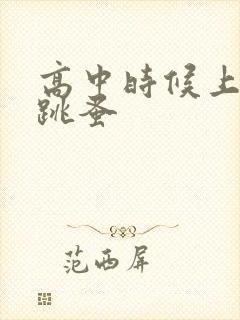 高中時候上
跳蚤
范西屏